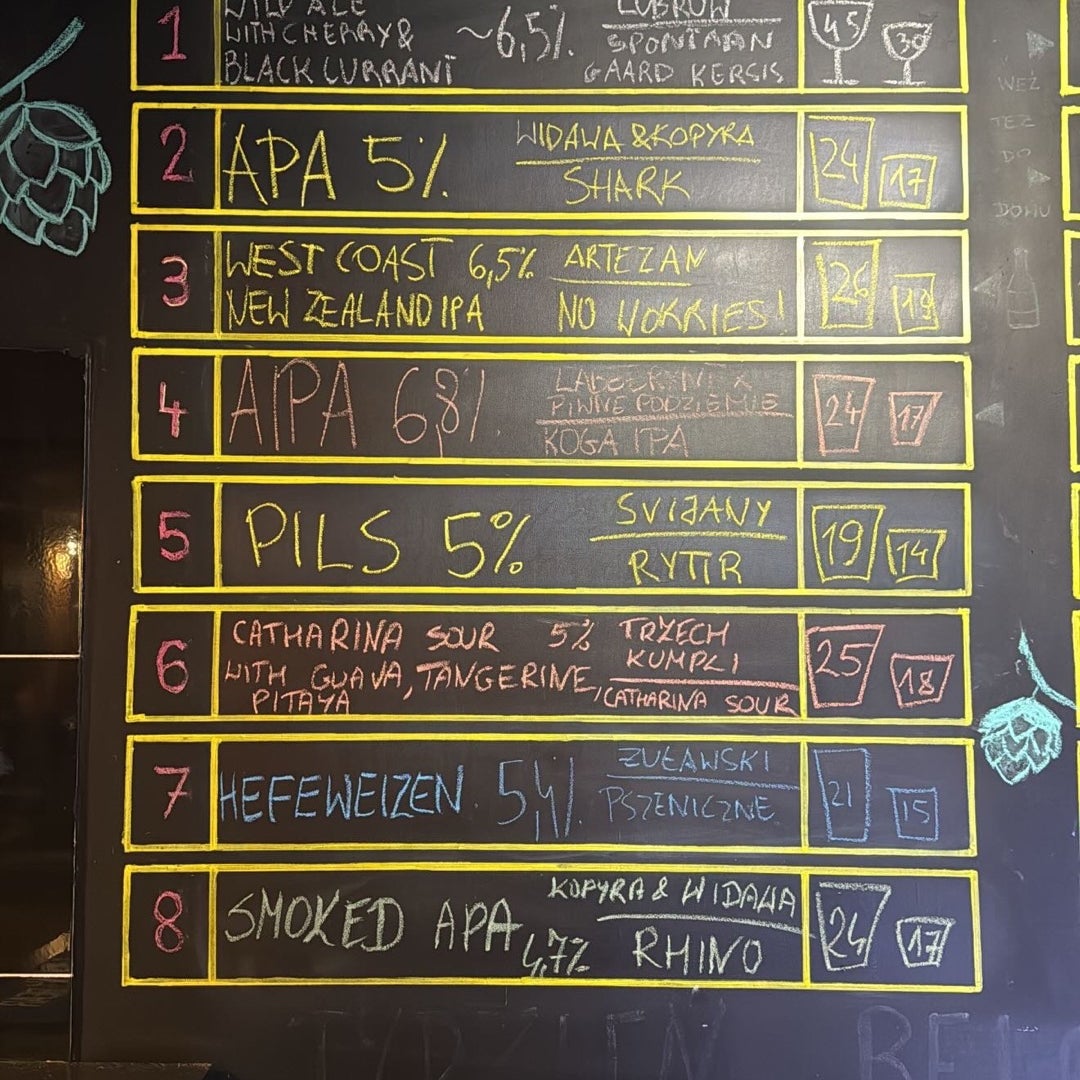 1
WILD ALE
WITH CHERRY &
BLACK CURRANT
~6,5%
LUBROW
SPONTAAN
GAARD KERSIS
45 30
2
APA 5%
WIDAWA & KOPYRA
SHARK
24 17
3
WEST COAST 6,5%
NEW ZEALAND IPA
ARTEZAN
NO WORRIES!
26
4
AIPA 6,8%
PIWNE PODZIEMIE
KOGA IPA
24 17
5
PILS 5%
SVIJANY
RYTIR
19 14
6
CATHARINA SOUR 5%
WITH GUAVA, TANGERINE,
PITAYA
TRZECH
KUMPLI
CATHARINA SOUR
25 18
7
HEFEWEIZEN 5,4%
ŻUŁAWSKI
PSZENICZNE
21 15
8
SMOKED APA
4,7%
KOPYRA & WIDAWA
RHINO
24 17
WEŹ
TEŻ
DO
DOMU